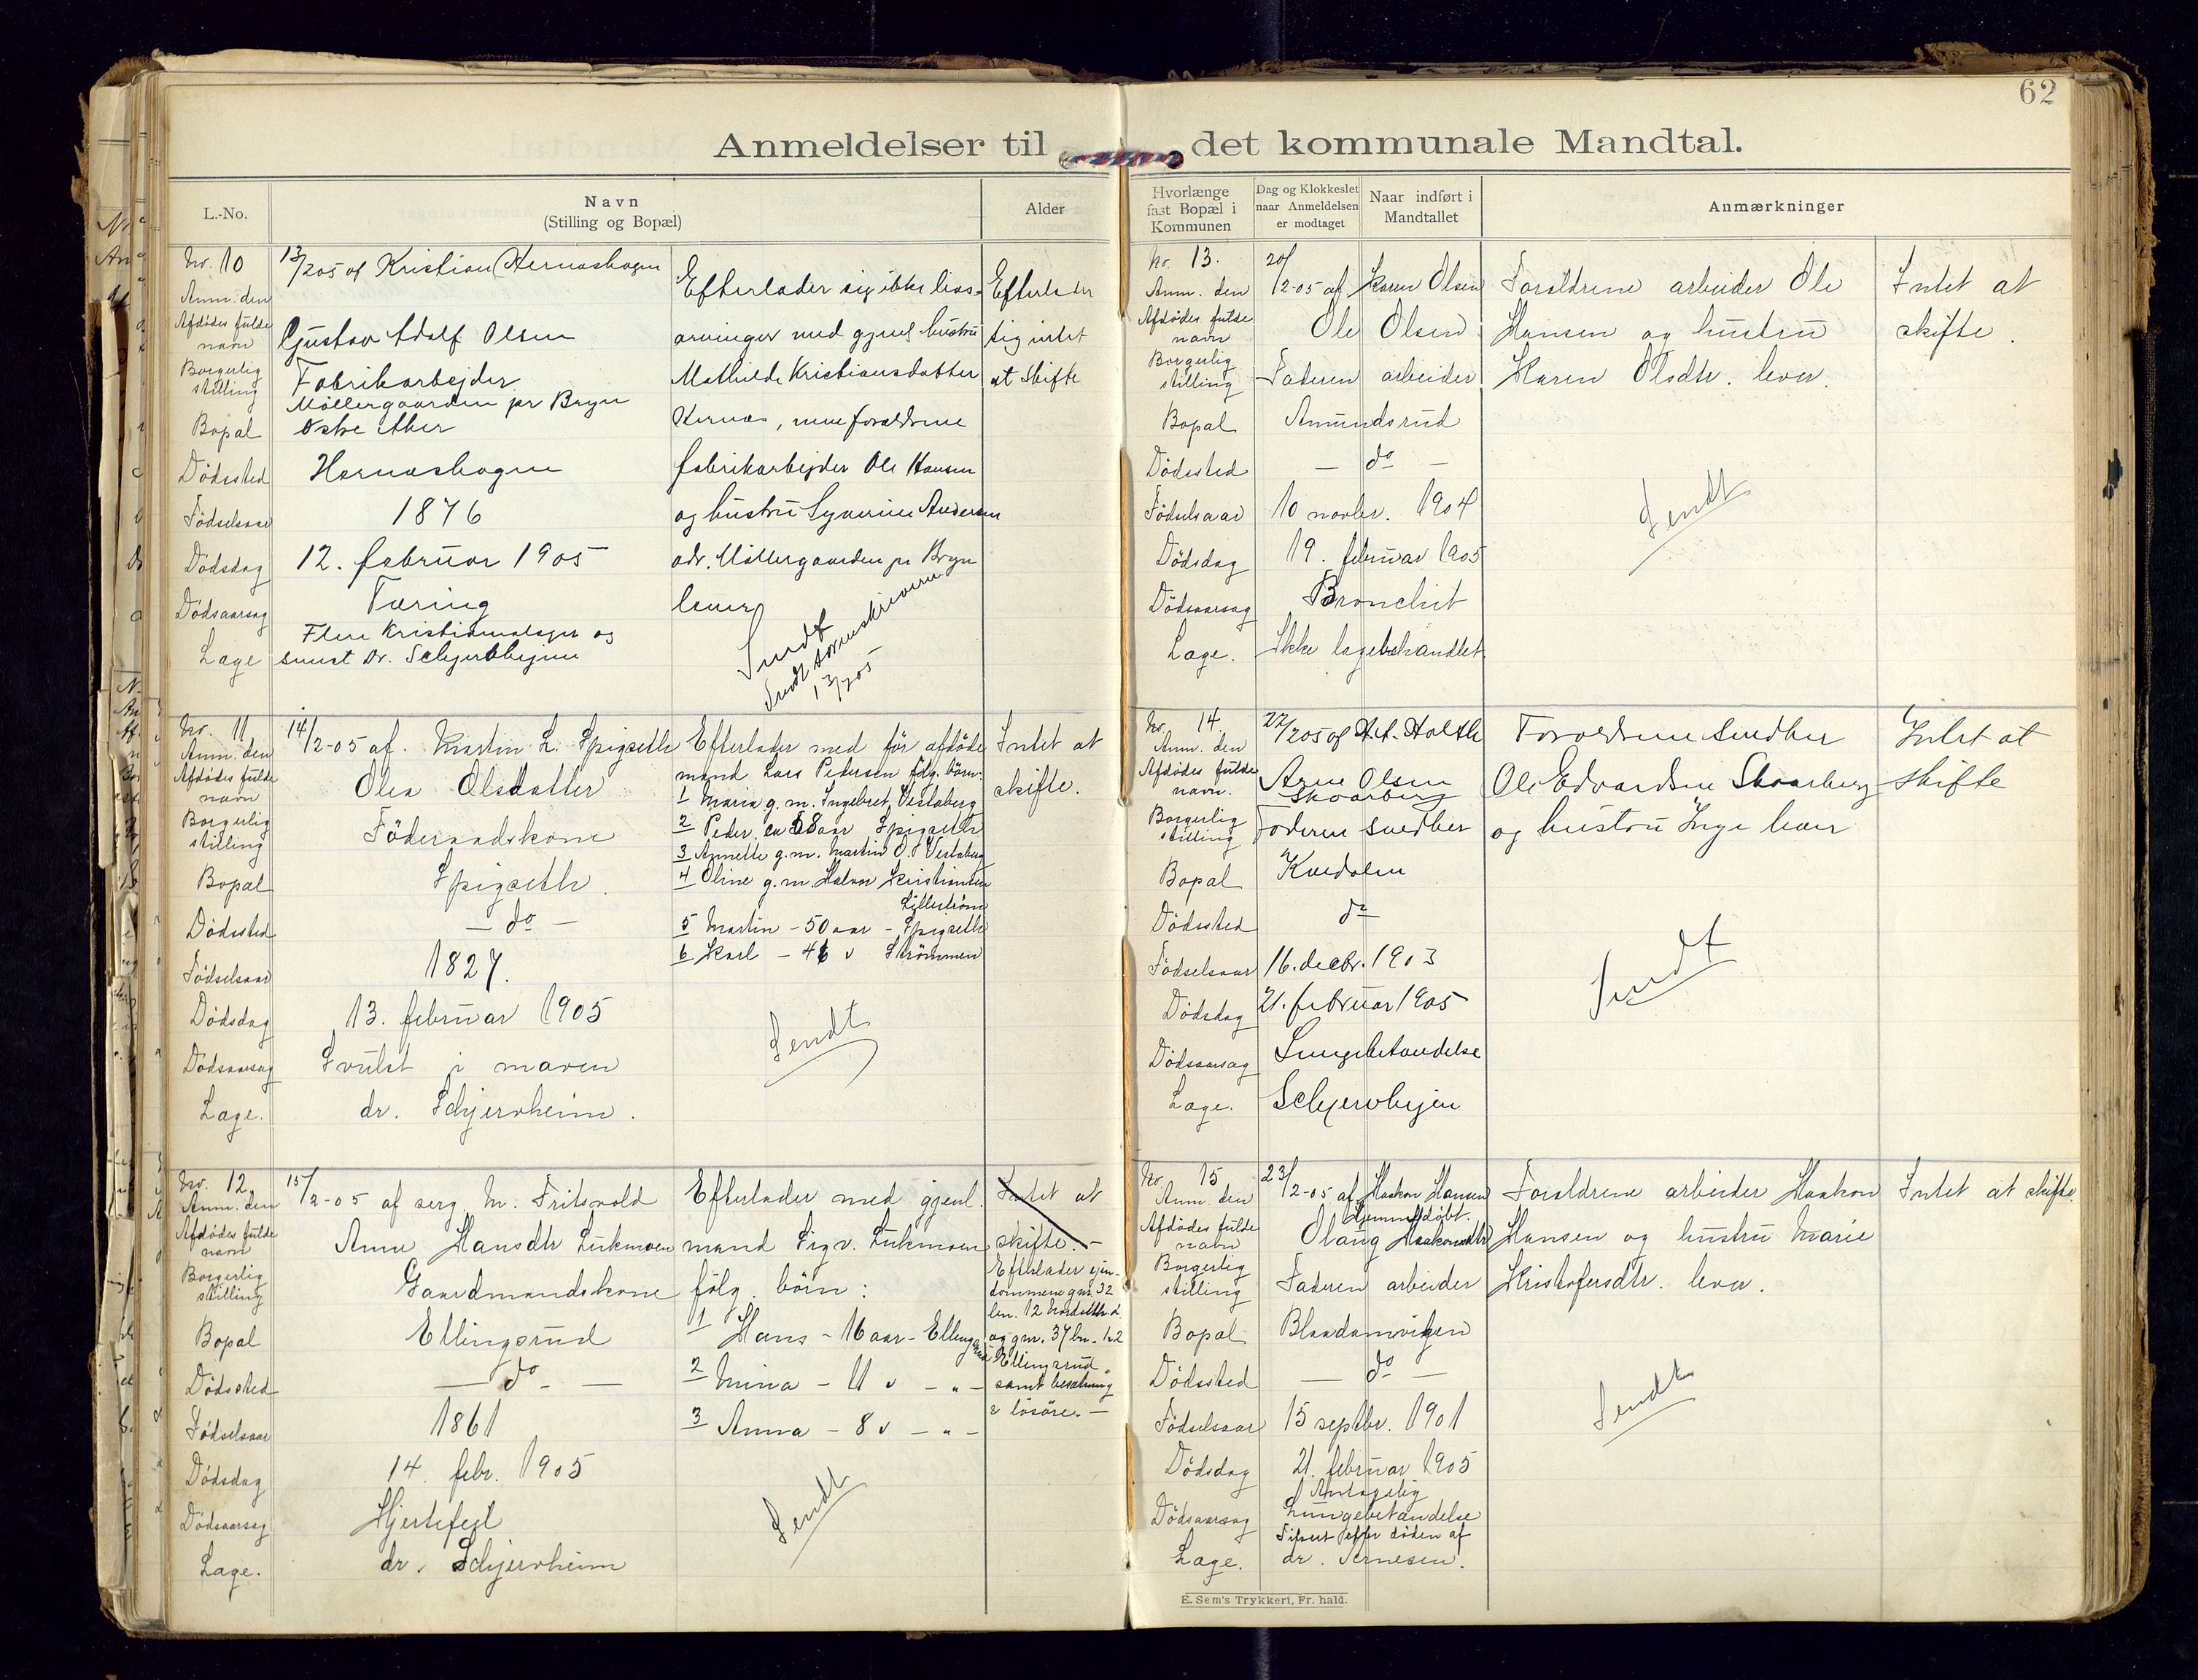 62
Anmeldelser til det kommunale Mandtal.
L.-No.
Navn
(Stilling og Bopæl)
Alder
Nr. 10 13/205 af Kristian Hernæshagen
Anm. den
Afdødes fulde navn Gustav Adolf Olsen
Borgerlig stilling Fabrikarbejder
Bopæl Möllergaarden pr Bryn
Østre Aker
Dödssted Hernæshagen
Födselsaar 1876
Dödsdag 12. februar 1905
Dödsaarsag Tæring
Læge Flere Kristianialæger og
senest Dr. Schjervheijm
Efterlader sig ikke livs-
arvinger med gjenl hustru
Mathilde Kristiansdatter
Hernæs, men forældrene
fabrikarbejder Ole Hansen
og hustru Syverine Andersen
adr. Möllergaarden pr Bryn
lever
Sendt
Sendt sorenskriveren
13/205
Efterlader
sig intet
at skifte
Nr. 11 14/2-05 af. Martin L. Spigseth
Anm. den
Afdödes fulde navn Olea Olsdatter
Borgerlig stilling Föderaadskone
Bopæl Spigseth.
Dödssted — do —
Födselsaar 1827.
Dödsdag 13. februar 1905
Dödsaarsag Svulst i maven
Læge. dr. Schjervheim.
Efterlader med för afdöde
mand Lars Pedersen fölg. börn:
1 Maria g. m. Ingebret Vestaberg
2 Peder, ca 58 aar Spigseth
3 Annette g. m. Martin O. Vestaberg
4 Oline g. m. Halvor Kristiansen
Lilleström
5 Martin - 50 aar - Spigseth
6 Karl - 46 " Strömmen
Sendt
Intet at
skifte.
Nr. 12 15/2-05 af serg. M. Fritsvold
Anm. den
Afdödes fulde navn Anne Hansdtr Lukmoen
Borgerlig stilling Gaardmandskone
Bopæl Ellingsrud
Dödssted — do —
Födselsaar 1861
Dödsdag 14. febr. 1905
Dödsaarsag Hjertefejl
Læge. dr. Schjervheim
Efterlader med gjenl.
mand Sigv. Lukmoen
fölg. börn:
1 Hans - 16 aar - Ellingsrud
2 Mina - 11 " - " -
3 Anna - 8 " - " -
Sendt
Intet at
skifte. -
Efterlader ejen-
dommene gnr. 32
bn. 12
og gnr. 37 bn. 1.2
Ellingsrud
samt besætning
& lösöre. —
Hvorlænge
fast Bopæl i
Kommunen
Dag og Klokkeslet
naar Anmeldelsen
er modtaget
Naar indført i
Mandtallet
Anmærkninger
Nr. 13. 20/2-05 af Karen Olsen
Anm. den
Afdödes fulde navn Ole Olsen
Borgerlig stilling Faderen arbeider
Bopæl Amundsrud
Dödssted — do —
Födselsaar 10 novbr. 1904
Dödsdag 19. februar 1905
Dödsaarsag Bronchit
Læge. Ikke lægebehandlet
Forældrene arbeider Ole
Hansen og hustru
Karen Olsdtr. lever.
Sendt
Intet at
skifte.
Nr. 14. 22/205 af A. A. Holth
Anm. den
Afdödes fulde navn. Arne Olsen
Skaarberg
Borgerlig stilling Faderen snedker
Bopæl Kvedalen
Dödssted do
Födselsaar 16. decbr. 1903
Dödsdag 21. februar 1905
Dödsaarsag Lungebetændelse
Læge. Schjervheijm
Forældrene snedker
Ole Edvardsen Skaarberg
og hustru Inge lever
Sendt
Intet at
skifte
Nr. 15 23/2-05 af Haakon Hansen
Anm. den
Hjemmedöbt.
Afdödes fulde navn Olaug Haakonsdtr
Borgerlig stilling Faderen arbeider
Bopæl
Dödssted — do —
Födselsaar 15 septbr. 1901
Dödsdag 21. februar 1905
Antagelig
Dödsaarsag Lungebetændelse
Tilseet efter döden af
Læge. dr. Arnesen.
Forældrene arbeider Haakon
Hansen og hustru Marie
Kristofersdtr. lever.
Sendt
Intet at skifte.
E. Sem's Trykkeri, Fr. hald.